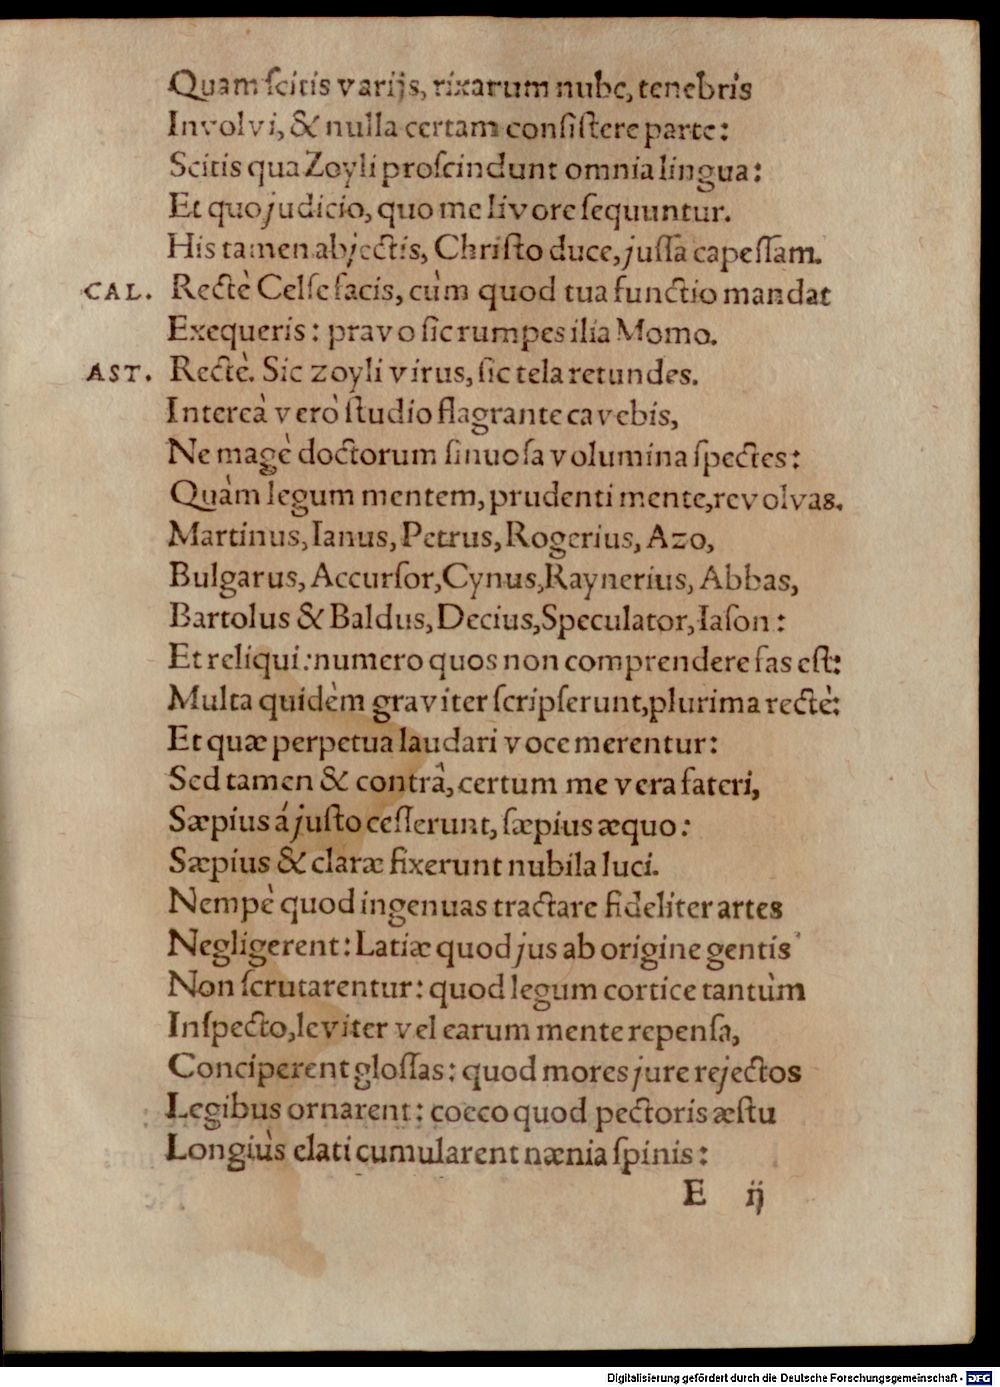 Quam ſcitis varijs, rixarum nube, tenebris
Involvi, & nulla certam conſiſtere parte:
Scitis qua Zoyli proſcindunt omnia lingua:
Et quo judicio, quo me livore ſequuntur.
His tamen abjectis, Chriſto duce, juſſa capeſſam.
CAL. Rectè Celſe facis, cùm quod tua functio mandat
Exequeris: pravo ſic rumpes ilia Momo.
AST. Rectè. Sic zoyli virus, ſic tela retundes.
Intereà verò ſtudio flagrante cavebis,
Ne magè doctorum ſinuoſa volumina ſpectes:
Quàm legum mentem, prudenti mente, revolvas.
Martinus, Ianus, Petrus, Rogerius, Azo,
Bulgarus, Accurſor, Cynus, Raynerius, Abbas,
Bartolus & Baldus, Decius, Speculator, Iaſon:
Et reliqui: numero quos non comprendere fas eſt:
Multa quidèm graviter ſcripſerunt, plurima rectè:
Et quæ perpetua laudari voce merentur:
Sed tamen & contrâ, certum me vera fateri,
Sæpius á juſto ceſſerunt, ſæpius æquo:
Sæpius & claræ fixerunt nubila luci.
Nempè quod ingenuas tractare fideliter artes
Negligerent: Latiæ quod jus ab origine gentis
Non ſcrutarentur: quod legum cortice tantùm
Inſpecto, leviter vel earum mente repenſa,
Conciperent gloſſas: quod mores jure rejectos
Legibus ornarent: coeco quod pectoris æſtu
Longiùs elati cumularent nænia ſpinis:
E ij
Digitalisierung gefördert durch die Deutsche Forschungsgemeinschaft - DFG